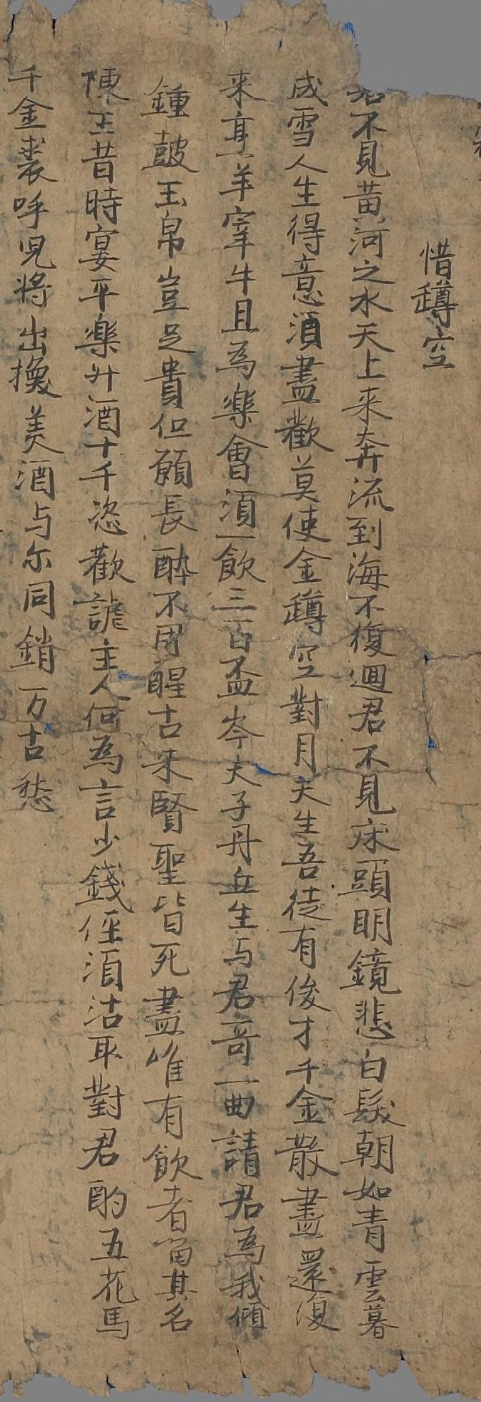 惜罇空
君不見黄河之水天上来奔流到海不復迴君不見床頭明鏡悲白髮朝如青雲暮
成雪人生得意湏盡歡莫使金罇空對月天生吾徒有俊才千金散盡還復
来烹羊宰牛且為樂會湏一飲三百盃岑夫子丹丘生与君哥一曲請君為我傾
鍾皷玉帛豈足貴但願長醉不用醒古来賢聖皆死盡唯有飲者留其名
陳王昔時宴平樂斗酒十千恣歡謔主人何為言少錢俓湏沽取對君酌五花馬
千金裘呼児将出換美酒与尓同銷万古愁